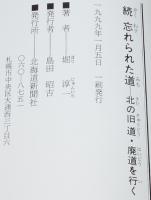 続 忘れられた道 北の旧道・廃道を行く
一九九九年一月五日 一刷発行
■著者―堀 淳一
■発行者―島田昭吉
■発行所―北海道新聞社
〇六〇‐八七五一
札幌市中央区大通西三丁目六